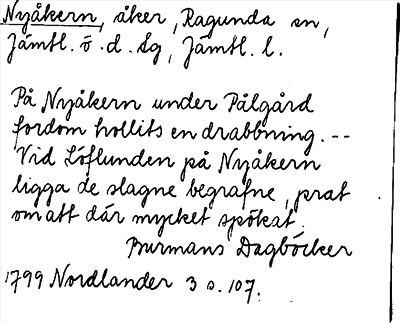 Nyåkern, åker, Ragunda sn,
Jämtl. ö. d. tg, Jämtl. l.
På Nyåkern under Pålgård
fordom hollits en drabbning. --
Vid Löflunden på Nyåkern
ligga de slagne begrafne, prat
om att där mycket spökat.
Burmans Dagböcker
1799 Nordlander 3 s. 107.